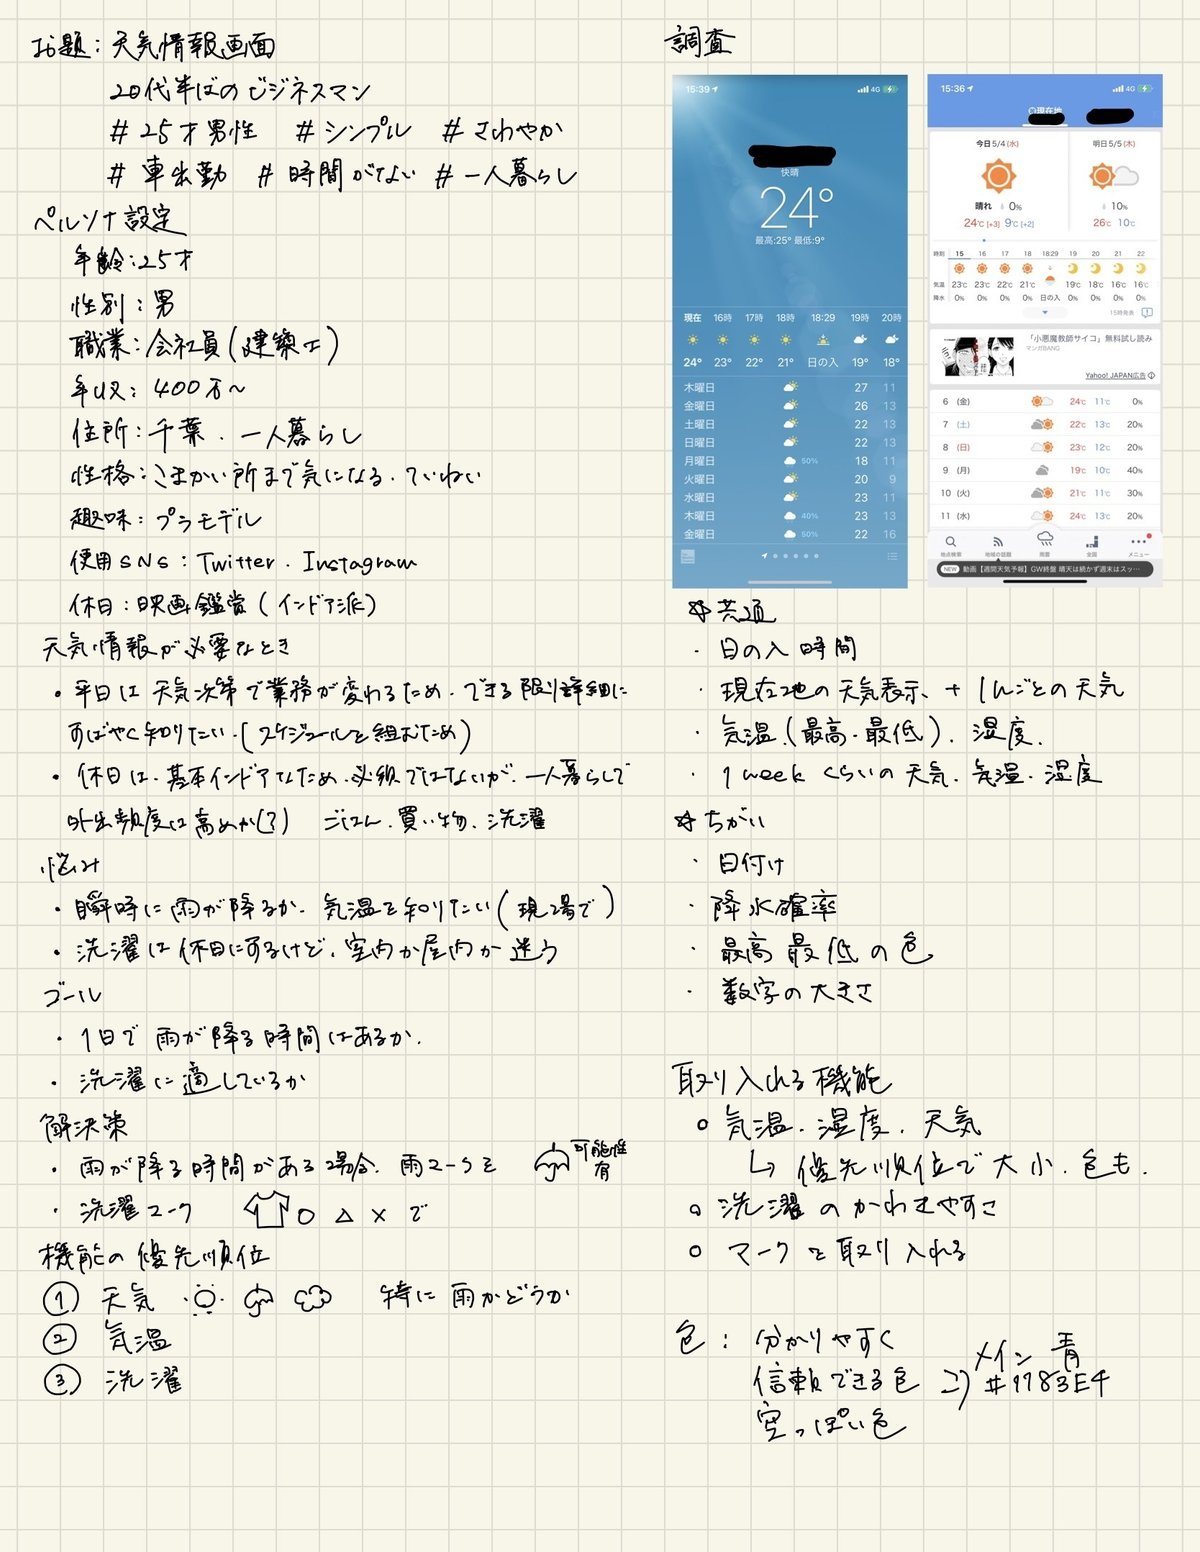 お題：天気情報画面
20代半ばのビジネスマン
#25才男性 #シンプル #さわやか
#車出勤 #時間がない #一人暮らし
ペルソナ設定
年齢：25才
性別：男
職業：会社員(建築士)
年収：400万〜
住所：千葉．一人暮らし
性格：こまかい所まで気になる．ていねい
趣味：プラモデル
使用SNS：Twitter．Instagram
休日：映画鑑賞(インドア派)
天気情報が必要なとき
・平日は天気次第で業務が変わるため．できる限り詳細に
すばやく知りたい．(スケジュールを組むため)
・休日は．基本インドアなため．必須ではないが．一人暮らしで
外出頻度は高めか(?) ごはん．買い物．洗濯
悩み
・瞬時に雨が降るか．気温を知りたい(現場で)
・洗濯は休日にするけど．室内か屋内か迷う
ゴール
・1日で雨が降る時間はあるか．
・洗濯に適しているか
解決策
・雨が降る時間がある場合．雨マークを 可能性
有
・洗濯マーク ○ △ × で
機能の優先順位
① 天気 特に雨かどうか
② 気温
③ 洗濯
調査
15:39 4G
快晴
24°
最高:25° 最低:9°
現在 16時 17時 18時 18:29 19時 20時
24° 23° 22° 21° 日の入 19° 18°
木曜日 27 11
金曜日 26 13
土曜日 22 13
日曜日 22 13
月曜日 50% 18 11
火曜日 20 9
水曜日 23 11
木曜日 40% 23 13
金曜日 50% 22 16
15:36 4G
現在地
今日 5/4 (水) 明日 5/5 (木)
晴れ 0% 10%
24℃ [+3] 9℃ [+2] 26℃ 10℃
時刻 15 16 17 18 18:29 19 20 21 22
気温 23℃ 23℃ 22℃ 21℃ 19℃ 18℃ 16℃ 16℃
降水 0% 0% 0% 0% 日の入 0% 0% 0% 0%
15時発表
「小悪魔教師サイコ」無料試し読み
マンガBANG
Yahoo! JAPAN広告
6 (金) 24℃ 11℃ 0%
7 (土) 22℃ 13℃ 20%
8 (日) 23℃ 12℃ 20%
9 (月) 19℃ 10℃ 40%
10 (火) 21℃ 11℃ 30%
11 (水) 24℃ 13℃ 20%
地点検索 地域の話題 雨雲 全国 メニュー
NEW 動画【週間天気予報】GW終盤 晴天は続かず週末はスッ…
☆共通
・日の入時間
・現在地の天気表示、+ 1hごとの天気
・気温(最高・最低)．湿度．
・1weekくらいの天気．気温．湿度
☆ちがい
・日付け
・降水確率
・最高 最低の色
・数字の大きさ
取り入れる機能
○ 気温．湿度．天気
↳ 優先順位で大小．色も．
○ 洗濯のかわきやすさ
○ マークを取り入れる
色：分かりやすく
信頼できる色
空っぽい色
メイン 青
#1183E4